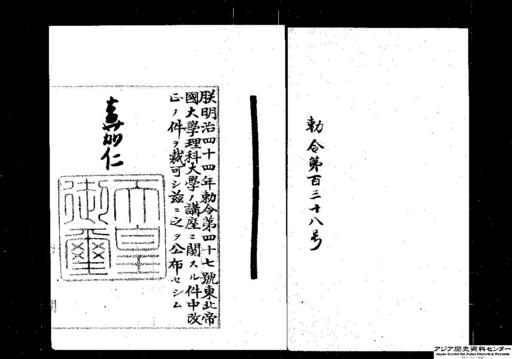 勅令第百三十八号
朕明治四十四年勅令第四十七號東北帝
國大學理科大學ノ講座ニ關スル件中改
正ノ件ヲ裁可シ茲ニ之ヲ公布セシム
嘉仁
天皇
御璽
アジア歴史資料センター
Japan Center for Asian Historical Records